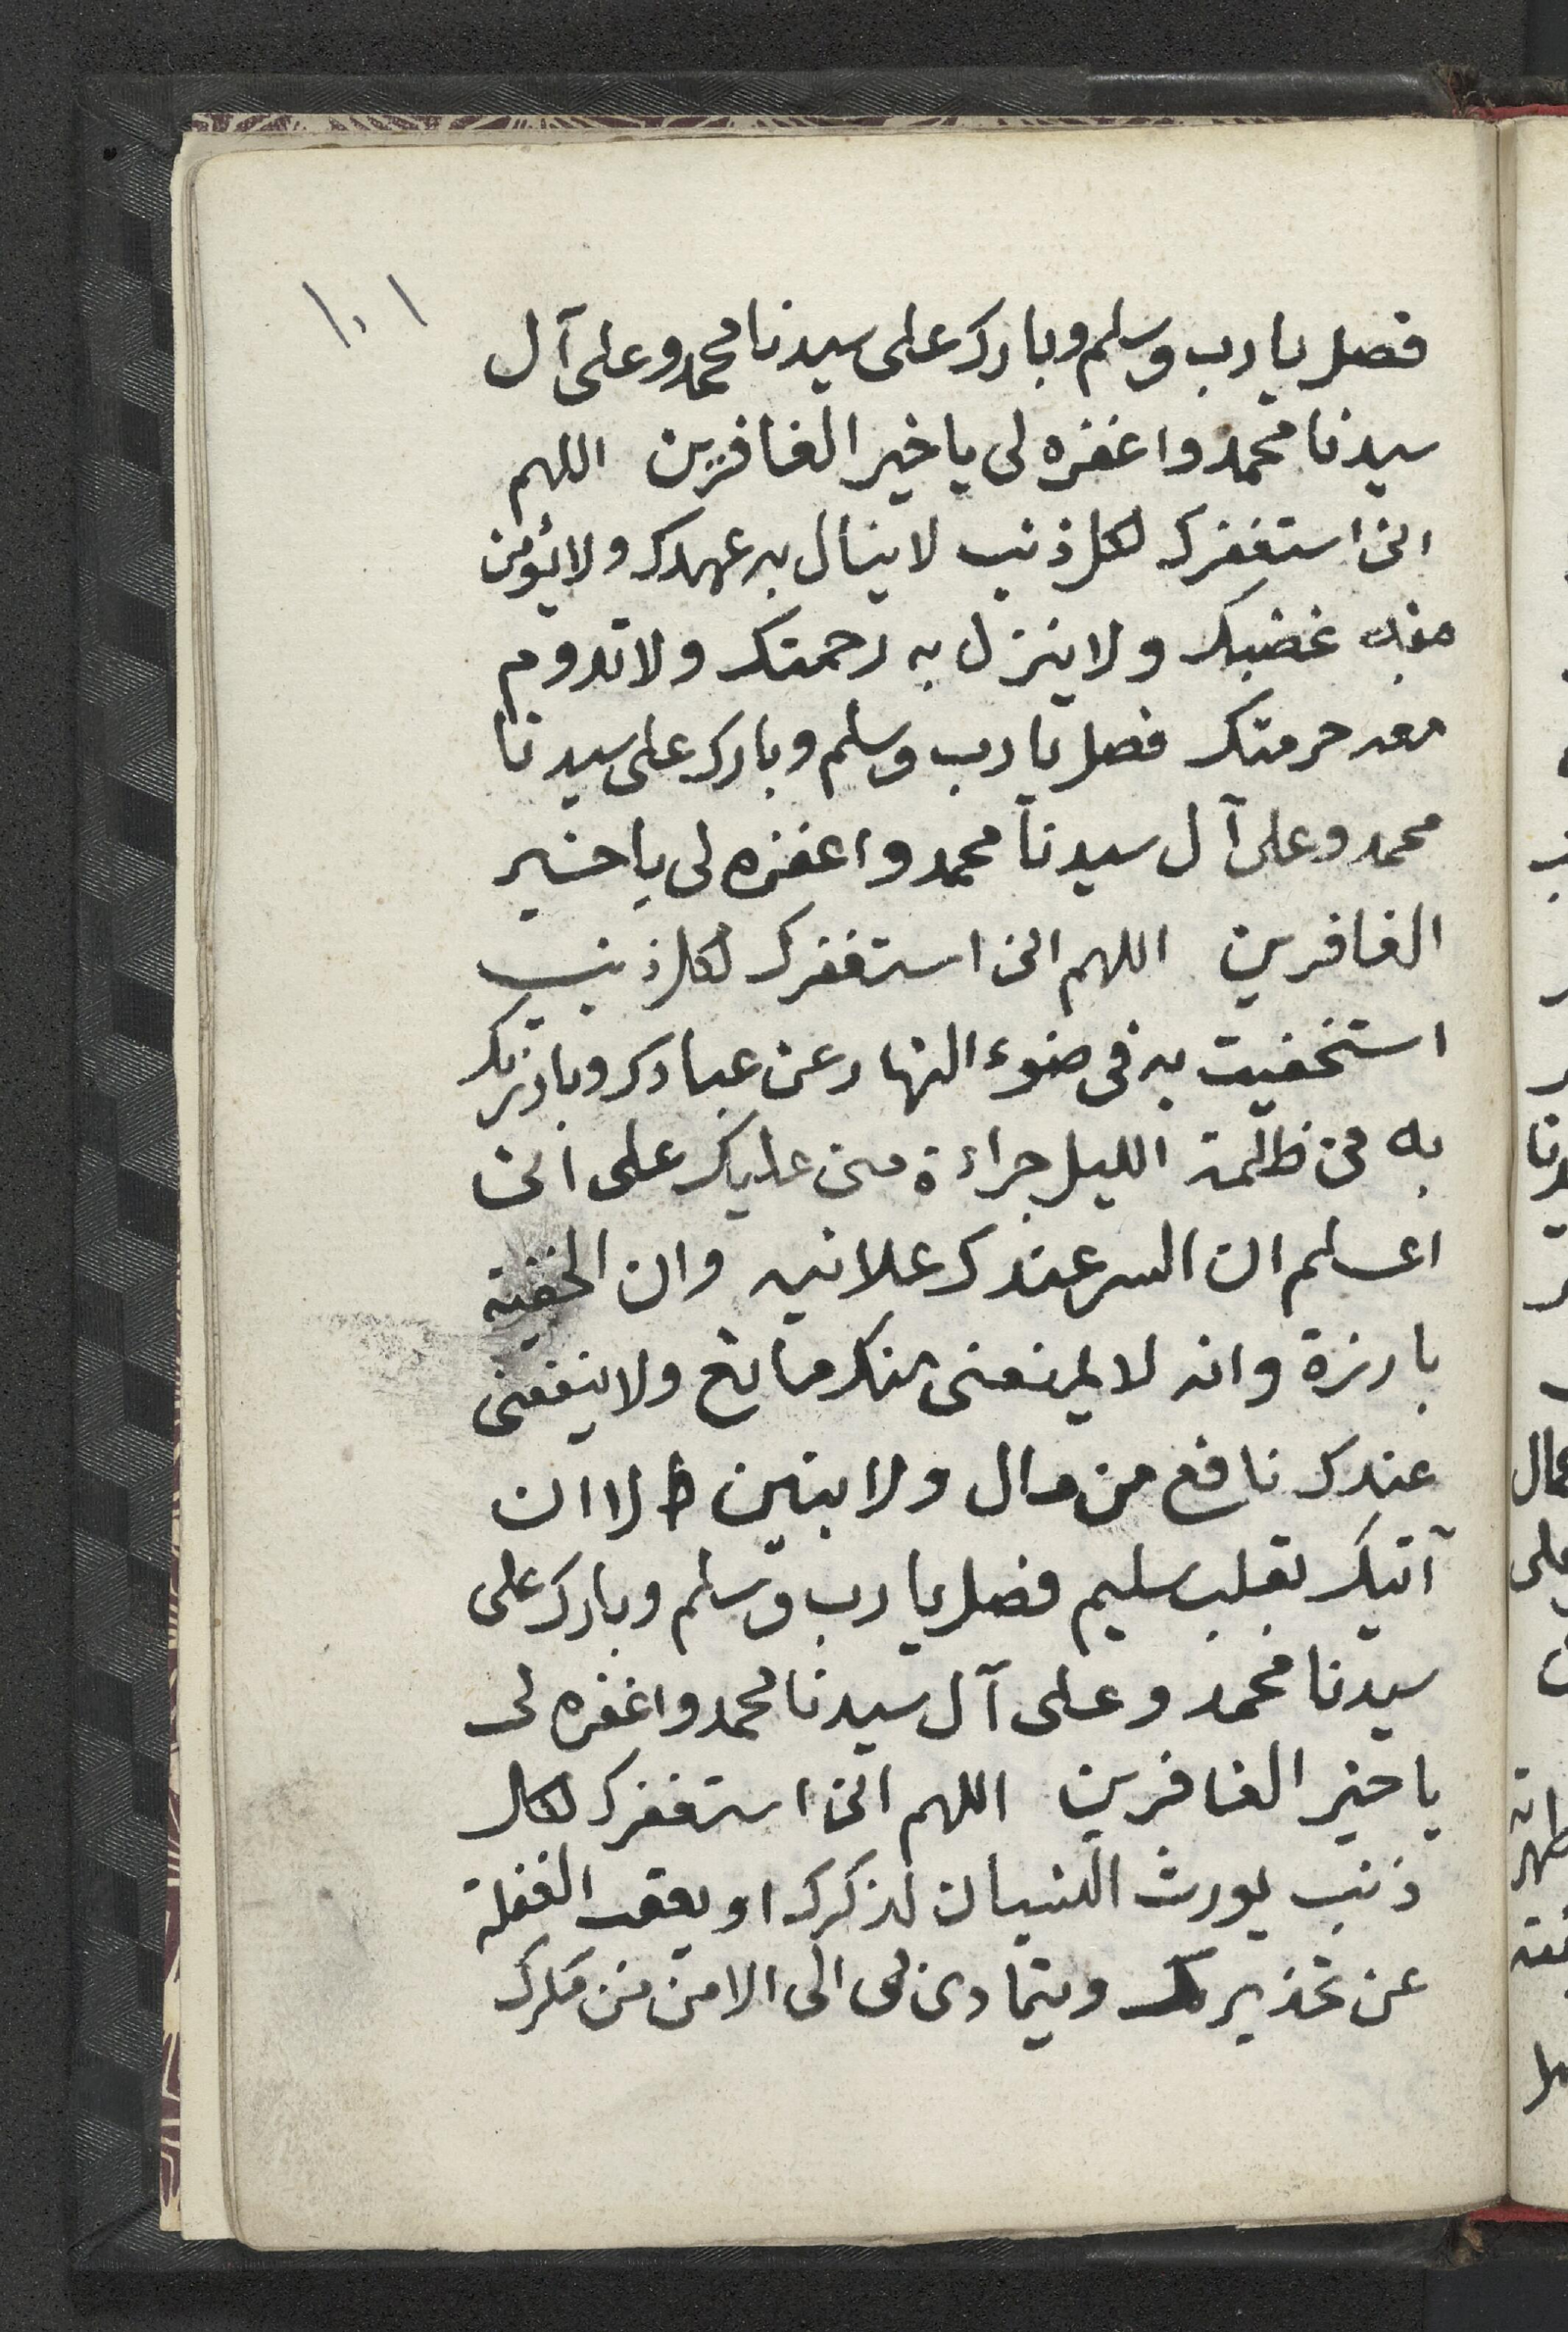 ١٠١
فصل يا رب وسلم وبارك على سيدنا محمد وعلى آل
سيدنا محمد واغفره لى يا خير الغافرين اللهم
انى استغفرك لكل ذنب لا ينال به عهدك ولا يؤمن
معه غضبك ولا ينزل به رحمتك ولا تدوم
معه حرمتك فصل يا رب وسلم وبارك على سيدنا
محمد وعلى آل سيدنا محمد واغفره لى يا خير
الغافرين اللهم انى استغفرك لكل ذنب
استخفيت به فى ضوء النهار عن عبادك وبارزتك
به فى ظلمة الليل جراءة منى عليك على انى
اعلم ان السر عندك علانيه وان الخفية
بارزة وانه لا يمنعنى منك مانع ولا ينفعنى
عندك نافع من مال ولا بنين الا ان
آتيك بقلب سليم فصل يا رب وسلم وبارك على
سيدنا محمد وعلى آل سيدنا محمد واغفره لى
يا خير الغافرين اللهم انى استغفرك لكل
ذنب يورث النسيان لذكرك او يعقب الغفلة
عن تحذيرك ويتمادى بى الى الامن من مكرك